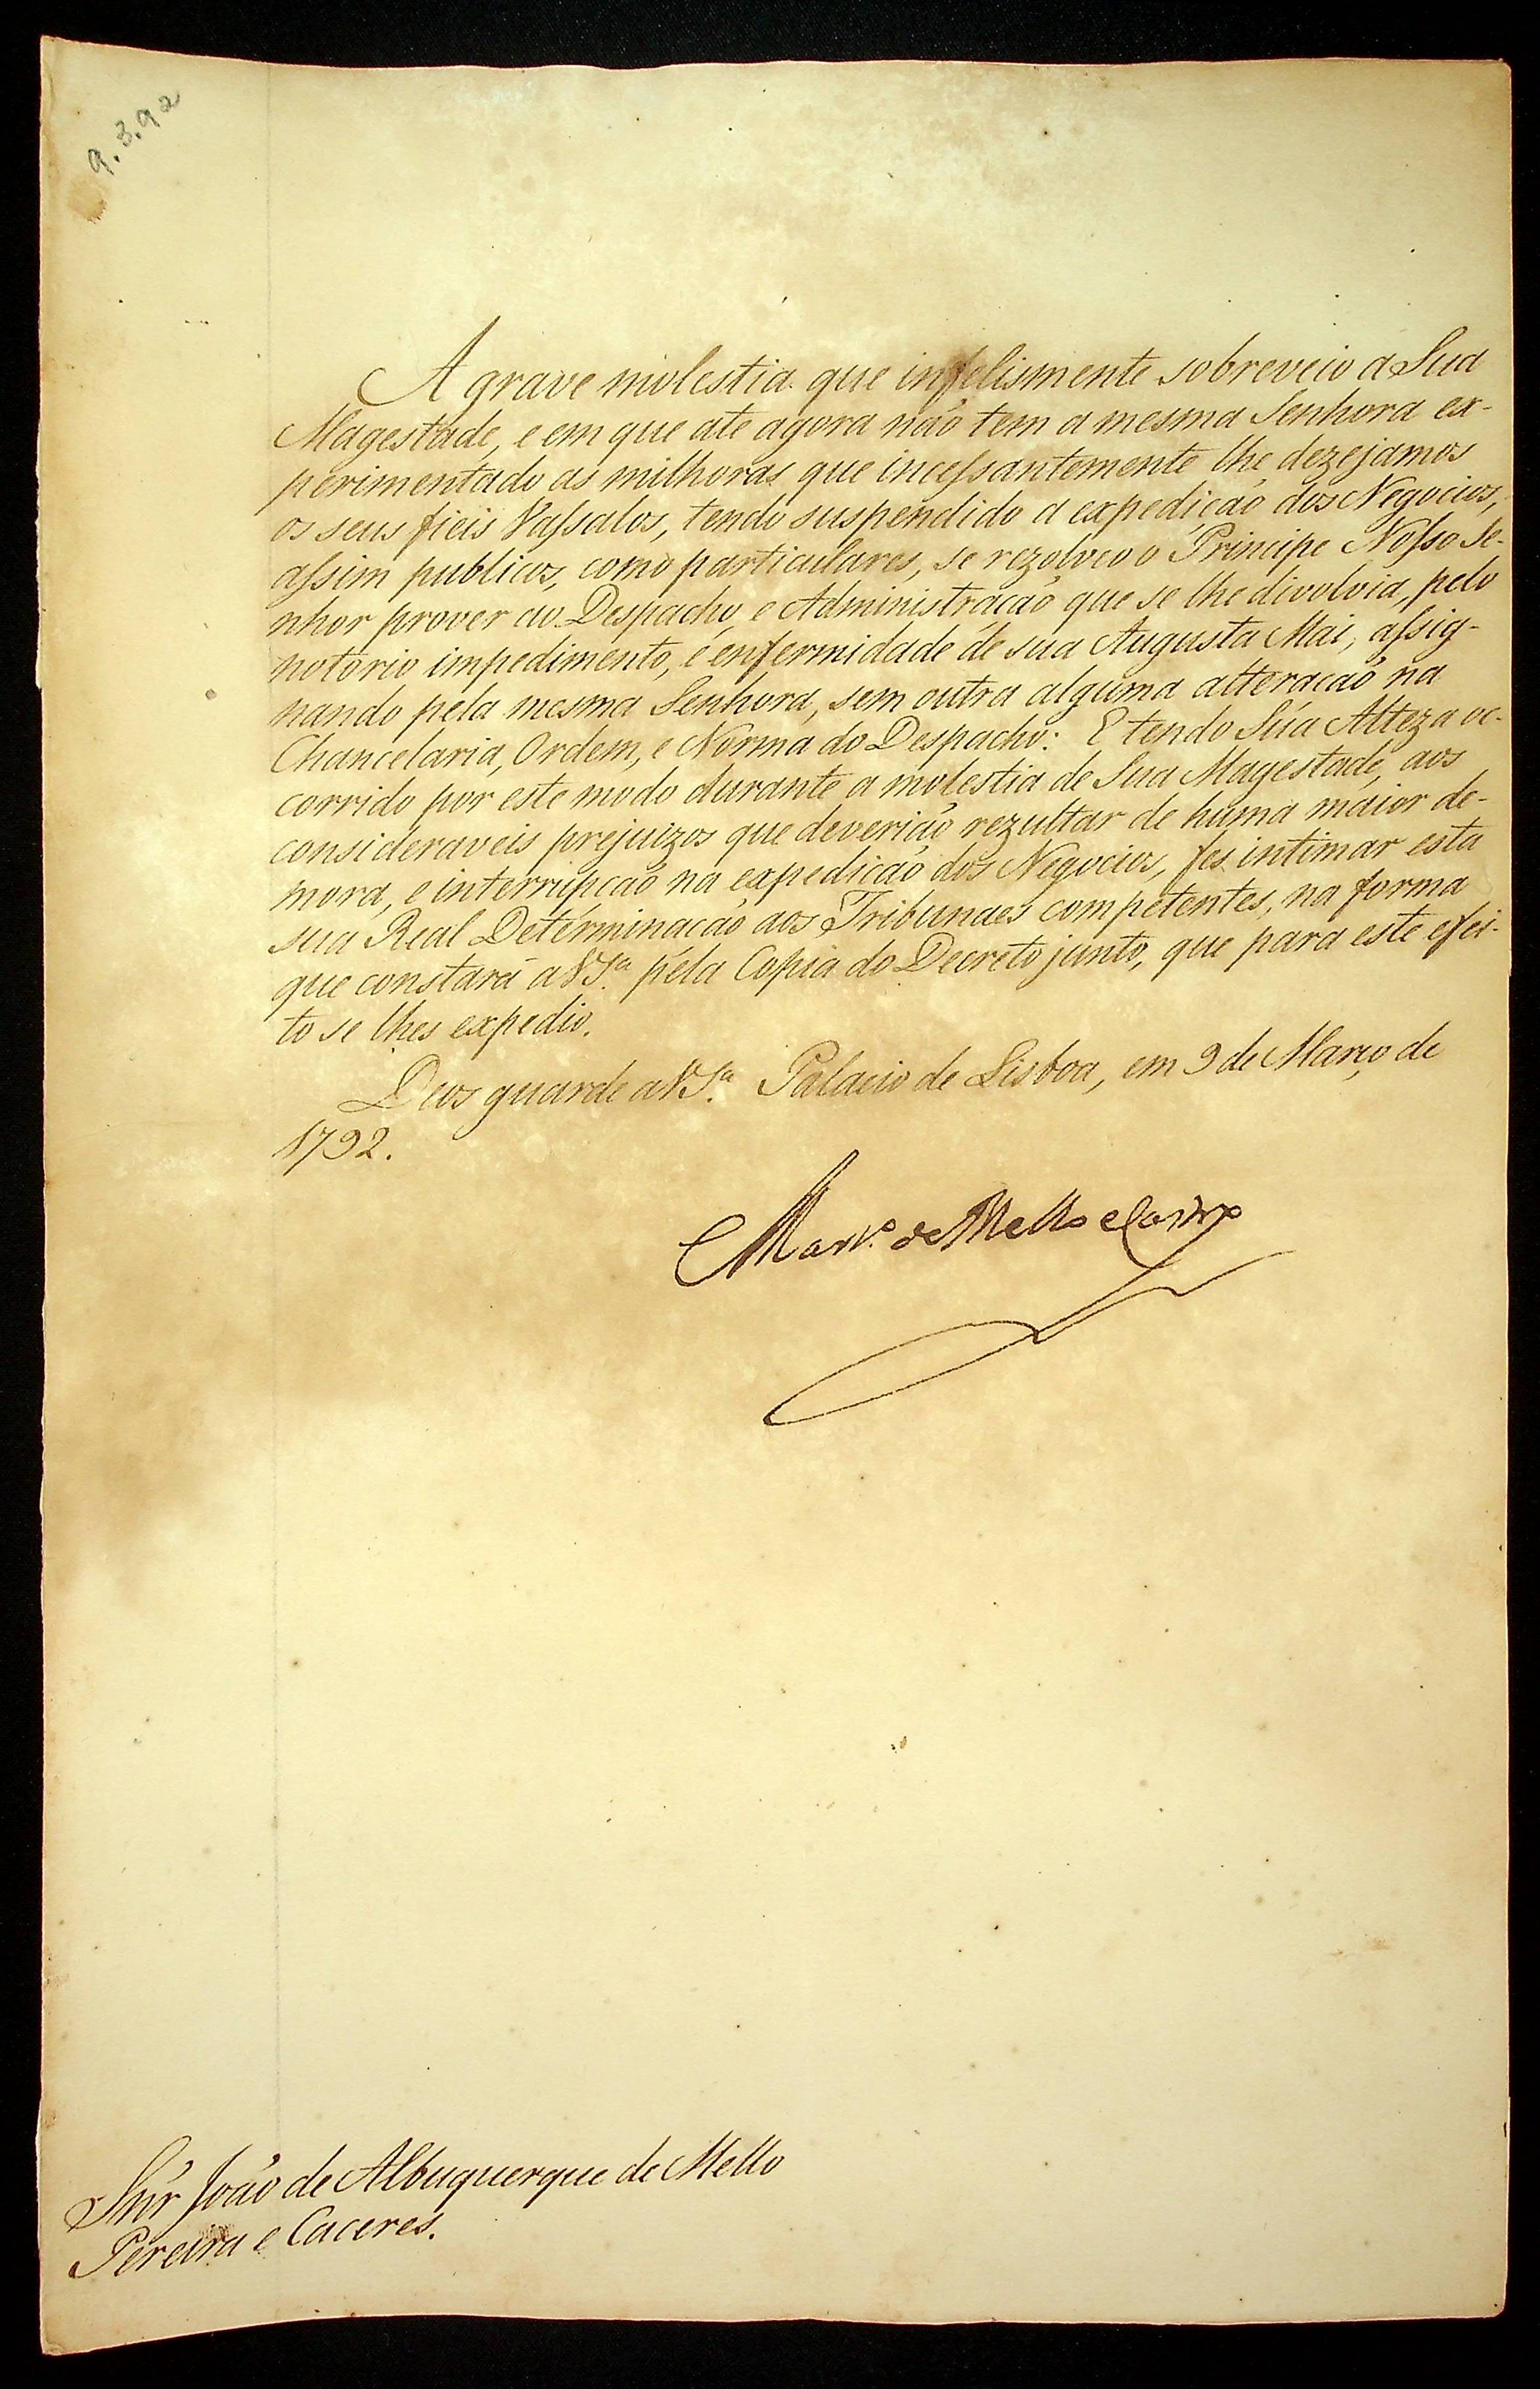 9.3.92
A grave molestia que infelismente sobreveio a Sua
Magestade, e em que até agora não tem a mesma Senhora ex-
perimentado as milhoras que incessantemente lhe dezejamos
os seus fieis Vassalos, tendo suspendido a expedição dos Negocios,
assim publicos, como particulares, se rezolveo o Principe Nosso Se-
nhor prover ao Despacho, e Administração que se lhe divolvia, pelo
notorio impedimento, e enfermidade de sua Augusta Mãi, assig-
nando pela mesma Senhora, sem outra alguma alteração na
Chancelaria, Ordem, e Norma do Despacho: E tendo Sua Alteza oc-
corrido por este modo durante a molestia de Sua Magestade, aos
consideraveis prejuizos que deverião rezultar de huma maior de-
mora, e interrupção na expedição dos Negocios, fes intimar esta
sua Real Determinação aos Tribunaes competentes, na forma
que constará a VS.ª pela Copia do Decreto junto, que para este efei-
to se lhes expedio.
Deos guarde a VS.ª Palacio de Lisboa, em 9 de Março de
1792.
Mart.º de Mello e Castro
Snr João de Albuquerque de Mello
Pereira e Caceres.